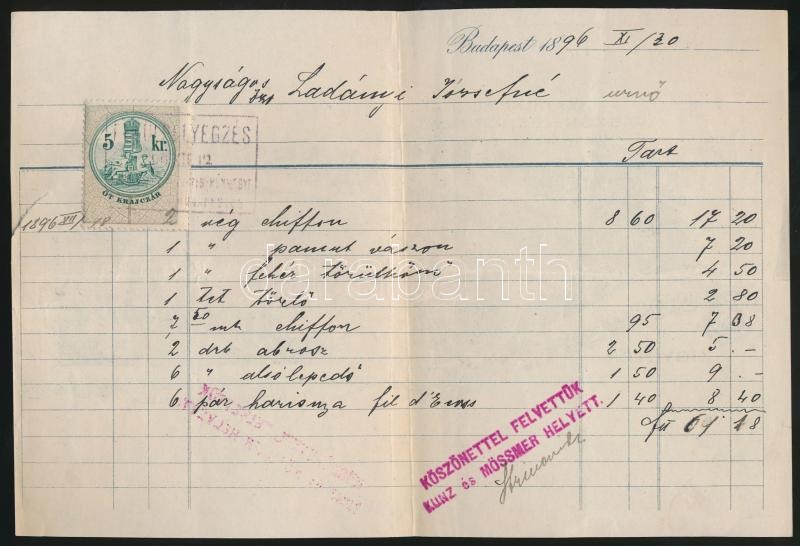 Budapest 1896 XI/30
Nagyságos Ladányi Józsefné urnő
5 kr.
ÖT KRAJCZÁR
LYEGZÉS
Tart
1896 VII/18 2 vég chiffon 8 60 17 20
1 " pamut vászon 7 20
1 " fehér törülköző 4 50
1 tct törlő 2 80
7 50 mtr chiffon 95 7 38
2 drb abrosz 2 50 5 .-
6 " alsólepedő 1 50 9 .-
6 pár harisnya fil d'Ecosse 1 40 8 40
frt 61 18
KÖSZÖNETTEL FELVETTÜK
KUNZ és MÖSSMER HELYETT.
darabanth